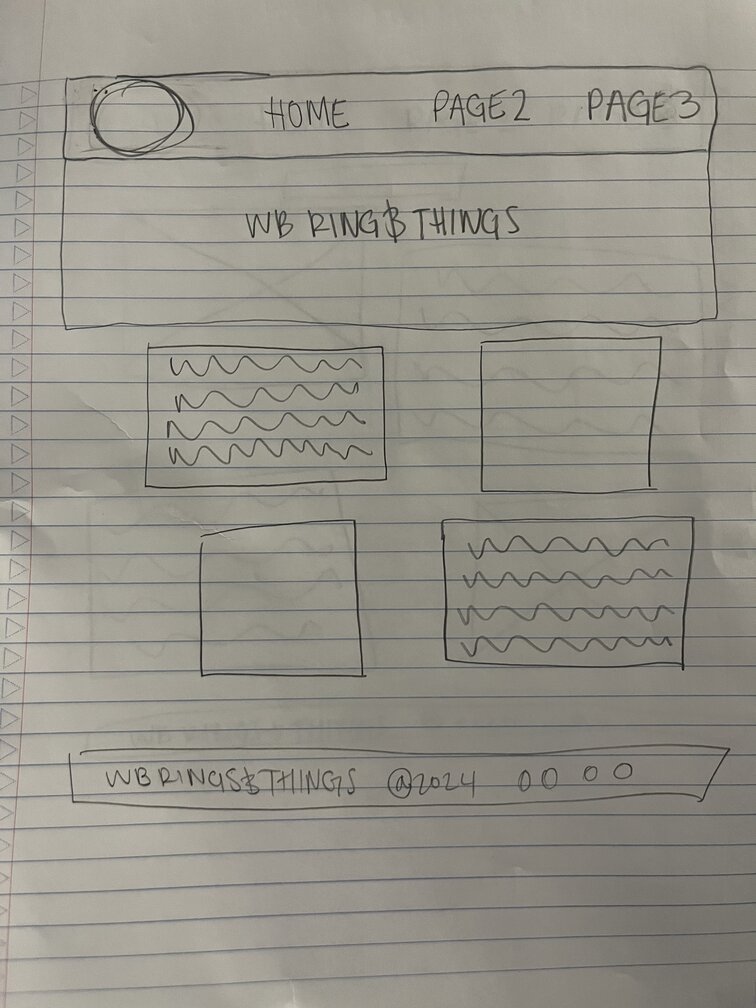 HOME PAGE2 PAGE3
WB RING$ THINGS
WB RINGS$ THINGS @2024